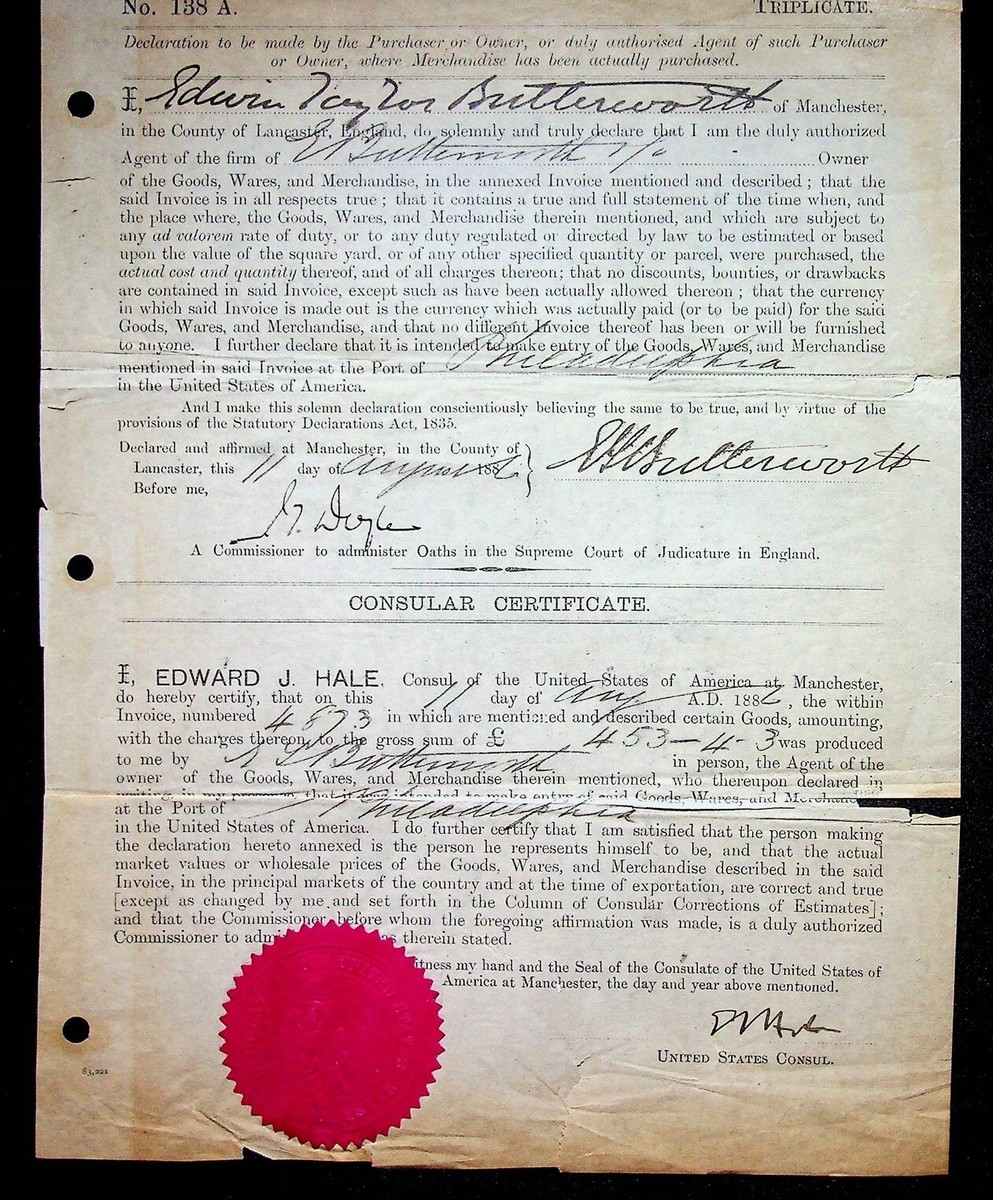 No. 138 A. TRIPLICATE.
Declaration to be made by the Purchaser or Owner, or duly authorised Agent of such Purchaser
or Owner, where Merchandise has been actually purchased.
I, Edwin Taylor Butterworth of Manchester,
in the County of Lancaster, England, do solemnly and truly declare that I am the duly authorized
Agent of the firm of E Butterworth Owner
of the Goods, Wares, and Merchandise, in the annexed Invoice mentioned and described; that the
said Invoice is in all respects true; that it contains a true and full statement of the time when, and
the place where, the Goods, Wares, and Merchandise therein mentioned, and which are subject to
any ad valorem rate of duty, or to any duty regulated or directed by law to be estimated or based
upon the value of the square yard, or of any other specified quantity or parcel, were purchased, the
actual cost and quantity thereof, and of all charges thereon; that no discounts, bounties, or drawbacks
are contained in said Invoice, except such as have been actually allowed thereon; that the currency
in which said Invoice is made out is the currency which was actually paid (or to be paid) for the said
Goods, Wares, and Merchandise, and that no different Invoice thereof has been or will be furnished
to anyone. I further declare that it is intended to make entry of the Goods, Wares, and Merchandise
mentioned in said Invoice at the Port of Philadelphia
in the United States of America.
And I make this solemn declaration conscientiously believing the same to be true, and by virtue of the
provisions of the Statutory Declarations Act, 1835.
Declared and affirmed at Manchester, in the County of
Lancaster, this 11 day of August 188
Butterworth
Before me,
Doyle
A Commissioner to administer Oaths in the Supreme Court of Judicature in England.
CONSULAR CERTIFICATE.
I, EDWARD J. HALE, Consul of the United States of America at Manchester,
do hereby certify, that on this 11 day of Aug A.D. 188 , the within
Invoice, numbered 4873 in which are mentioned and described certain Goods, amounting,
with the charges thereon, to the gross sum of £ 453-4-3 was produced
to me by Butterworth in person, the Agent of the
owner of the Goods, Wares, and Merchandise therein mentioned, who thereupon declared in
writing, in my presence, that it was intended to make entry of said Goods, Wares, and Merchandise
at the Port of Philadelphia
in the United States of America. I do further certify that I am satisfied that the person making
the declaration hereto annexed is the person he represents himself to be, and that the actual
market values or wholesale prices of the Goods, Wares, and Merchandise described in the said
Invoice, in the principal markets of the country and at the time of exportation, are correct and true
[except as changed by me and set forth in the Column of Consular Corrections of Estimates];
and that the Commissioner before whom the foregoing affirmation was made, is a duly authorized
Commissioner to adm as therein stated.
itness my hand and the Seal of the Consulate of the United States of
America at Manchester, the day and year above mentioned.
UNITED STATES CONSUL.
83,221